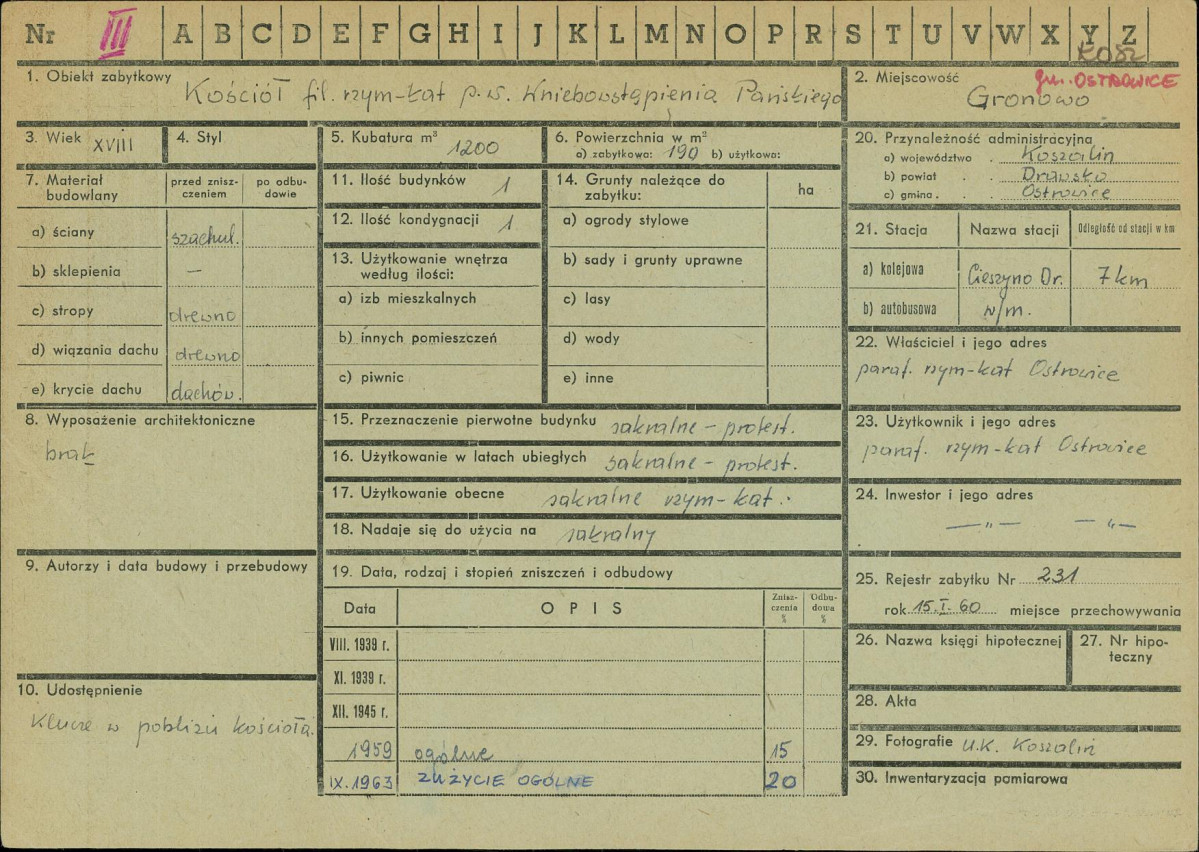 Nr III A B C D E F G H I J K L M N O P R S T U V W X Y Z
1. Obiekt zabytkowy Kościół fil. rzym-kat p.w. Wniebowstąpienia Pańskiego
2. Miejscowość gm. OSTROWICE
Gronowo
3. Wiek XVIII
4. Styl
5. Kubatura m³ 1200
6. Powierzchnia w m²
a) zabytkowa: 190 b) użytkowa:
7. Materiał budowlany
przed znisz-
czeniem
po odbu-
dowie
a) ściany szachul.
b) sklepienia —
c) stropy drewno
d) wiązania dachu drewno
e) krycie dachu dachów.
8. Wyposażenie architektoniczne
brak
9. Autorzy i data budowy i przebudowy
10. Udostępnienie
Klucze w pobliżu kościoła.
11. Ilość budynków 1
12. Ilość kondygnacji 1
13. Użytkowanie wnętrza
według ilości:
a) izb mieszkalnych
b) innych pomieszczeń
c) piwnic
14. Grunty należące do
zabytku:
ha
a) ogrody stylowe
b) sady i grunty uprawne
c) lasy
d) wody
e) inne
15. Przeznaczenie pierwotne budynku sakralne – protest.
16. Użytkowanie w latach ubiegłych sakralne – protest.
17. Użytkowanie obecne sakralne rzym-kat.
18. Nadaje się do użycia na sakralny
19. Data, rodzaj i stopień zniszczeń i odbudowy
Data
OPIS
Znisz-
czenia
%
Odbu-
dowa
%
VIII. 1939 r.
XI. 1939 r.
XII. 1945 r.
1959 ogólne 15
IX. 1963 ZUŻYCIE OGÓLNE 20
20. Przynależność administracyjna
a) województwo Koszalin
b) powiat Drawsko
c) gmina Ostrowice
21. Stacja
Nazwa stacji
Odległość od stacji w km
a) kolejowa Cieszyno Dr. 7 km
b) autobusowa w/m.
22. Właściciel i jego adres
paraf. rzym-kat Ostrowice
23. Użytkownik i jego adres
paraf. rzym-kat Ostrowice
24. Inwestor i jego adres
—„— —„—
25. Rejestr zabytku Nr 231
rok 15.I-60 miejsce przechowywania
26. Nazwa księgi hipotecznej
27. Nr hipo-
teczny
28. Akta
29. Fotografie U.K. Koszalin
30. Inwentaryzacja pomiarowa